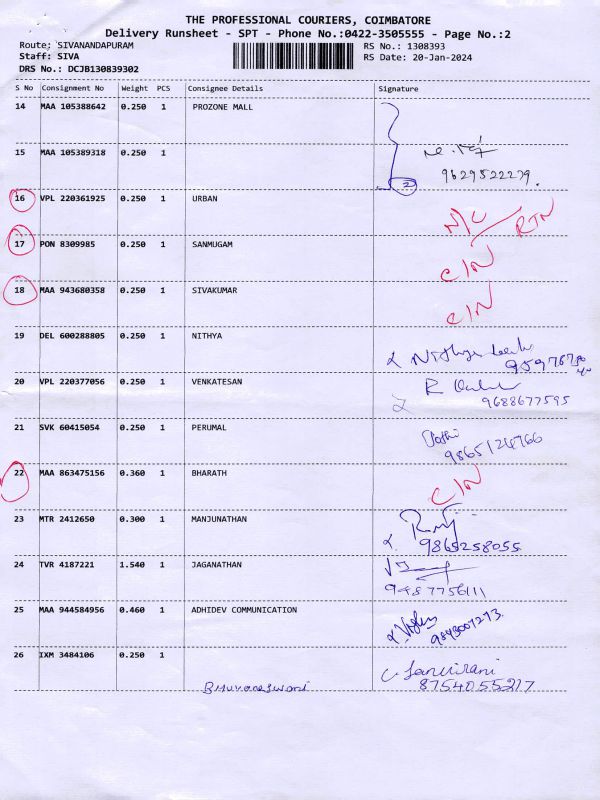 THE PROFESSIONAL COURIERS, COIMBATORE
Delivery Runsheet - SPT - Phone No.:0422-3505555 - Page No.:2
Route; SIVANANDAPURAM RS No.: 1308393
Staff: SIVA RS Date: 20-Jan-2024
DRS No.: DCJB130839302
S No Consignment No Weight PCS Consignee Details Signature
14 MAA 105388642 0.250 1 PROZONE MALL
15 MAA 105389318 0.250 1
9629522279.
2
16 VPL 220361925 0.250 1 URBAN N/C RTN
17 PON 8309985 0.250 1 SANMUGAM C/N
18 MAA 943680358 0.250 1 SIVAKUMAR C/N
19 DEL 600288805 0.250 1 NITHYA Nithya
20 VPL 220377056 0.250 1 VENKATESAN R
9688677595
21 SVK 60415054 0.250 1 PERUMAL
22 MAA 863475156 0.360 1 BHARATH C/N
23 MTR 2412650 0.300 1 MANJUNATHAN
9865258055
24 TVR 4187221 1.540 1 JAGANATHAN
9487756111
25 MAA 944584956 0.460 1 ADHIDEV COMMUNICATION
9843007273.
26 IXM 3484106 0.250 1
Bhuvaneswari 8754055217